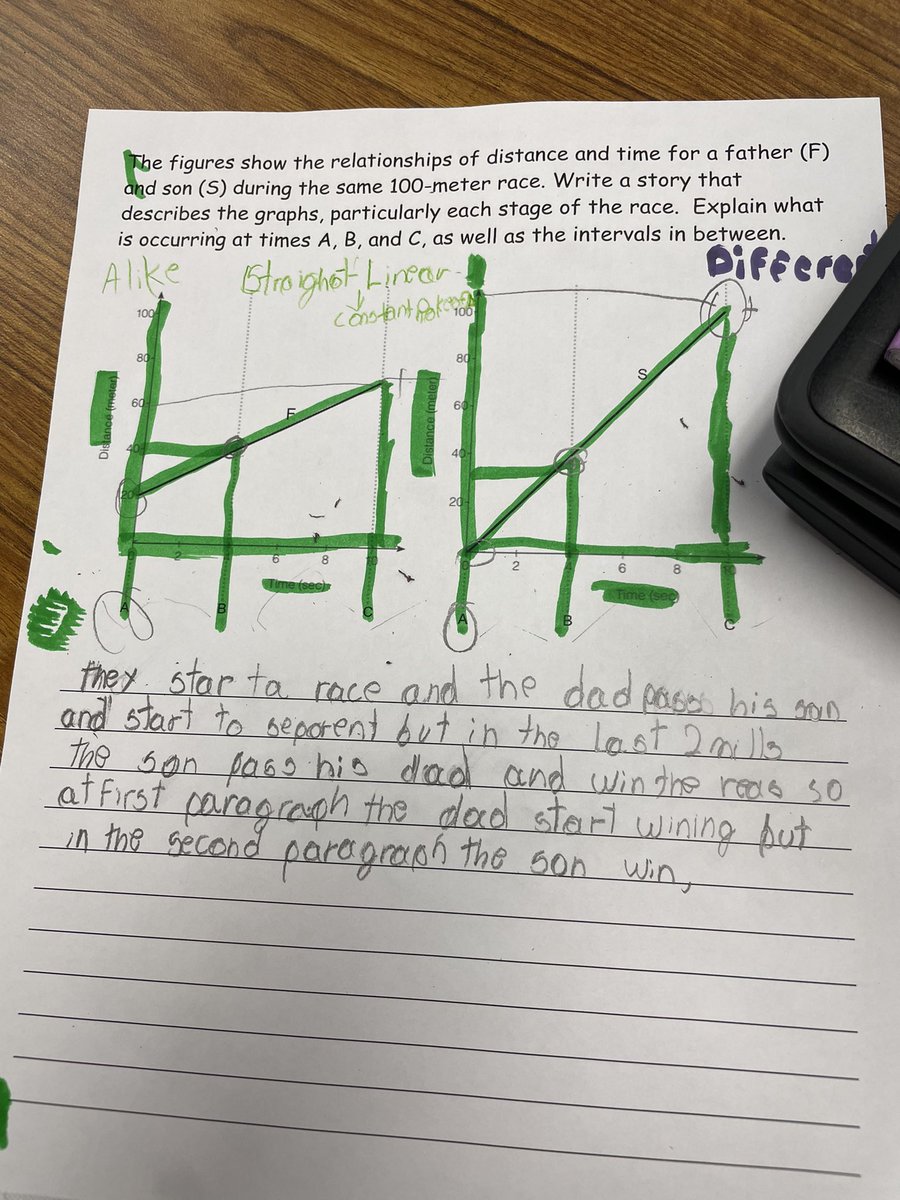 The figures show the relationships of distance and time for a father (F)
and son (S) during the same 100-meter race. Write a story that
describes the graphs, particularly each stage of the race. Explain what
is occurring at times A, B, and C, as well as the intervals in between.
Alike
Straighot Linear
constant
Differe
100
80
60
40
20
Distance (meter)
F
2
6
8
10
Time (sec)
A
B
C
100
80
60
40
20
Distance (meter)
S
0
2
6
8
10
Time (sec)
A
B
C
they star ta race and the dad pass his son
and start to seporent but in the last 2 mills
the son pass his dad and win the reas so
at first paragraph the dad start wining but
in the second paragraph the son win,